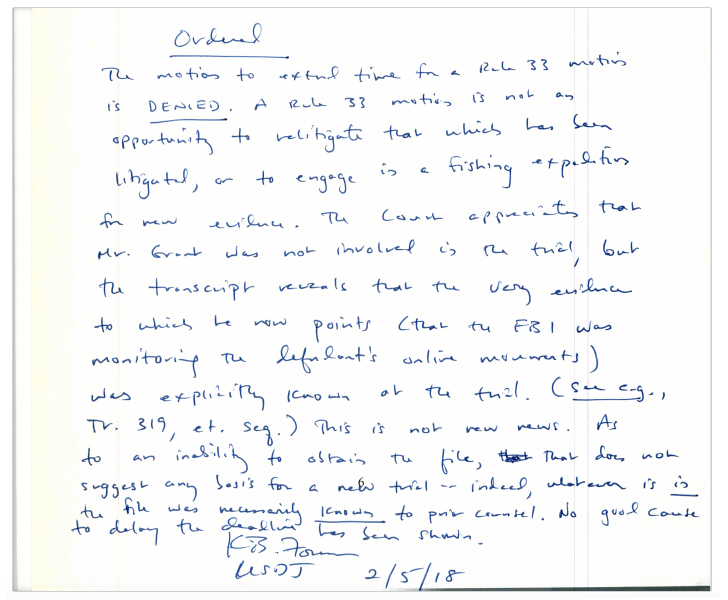 Ordered
The motion to extend time for a Rule 33 motion
is DENIED. A Rule 33 motion is not an
opportunity to relitigate that which has been
litigated, or to engage in a fishing expedition
for new evidence. The Court appreciates that
Mr. Grant was not involved in the trial, but
the transcript reveals that the very evidence
to which he now points (that the FBI was
monitoring the defendant's online movements)
was explicitly known at the trial. (See e.g.,
Tr. 319, et. seq.) This is not new news. As
to an inability to obtain the file, that That does not
suggest any basis for a new trial -- indeed, whatever is in
the file was necessarily known to prior counsel. No good cause
to delay the deadline has been shown.
K.B. Forrest
USDJ 2/5/18